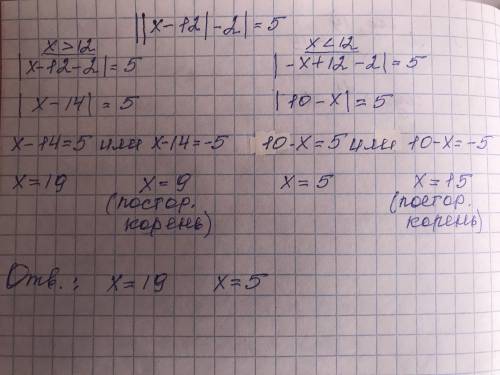 ||x-12|-2|=5
x>12 x<12
|x-12-2|=5 |-x+12-2|=5
|x-14|=5 |10-x|=5
x-14=5 или x-14=-5 10-x=5 или 10-x=-5
x=19 x=9 x=5 x=15
(постор. (постор.
корень) корень)
Отв.: x=19 x=5